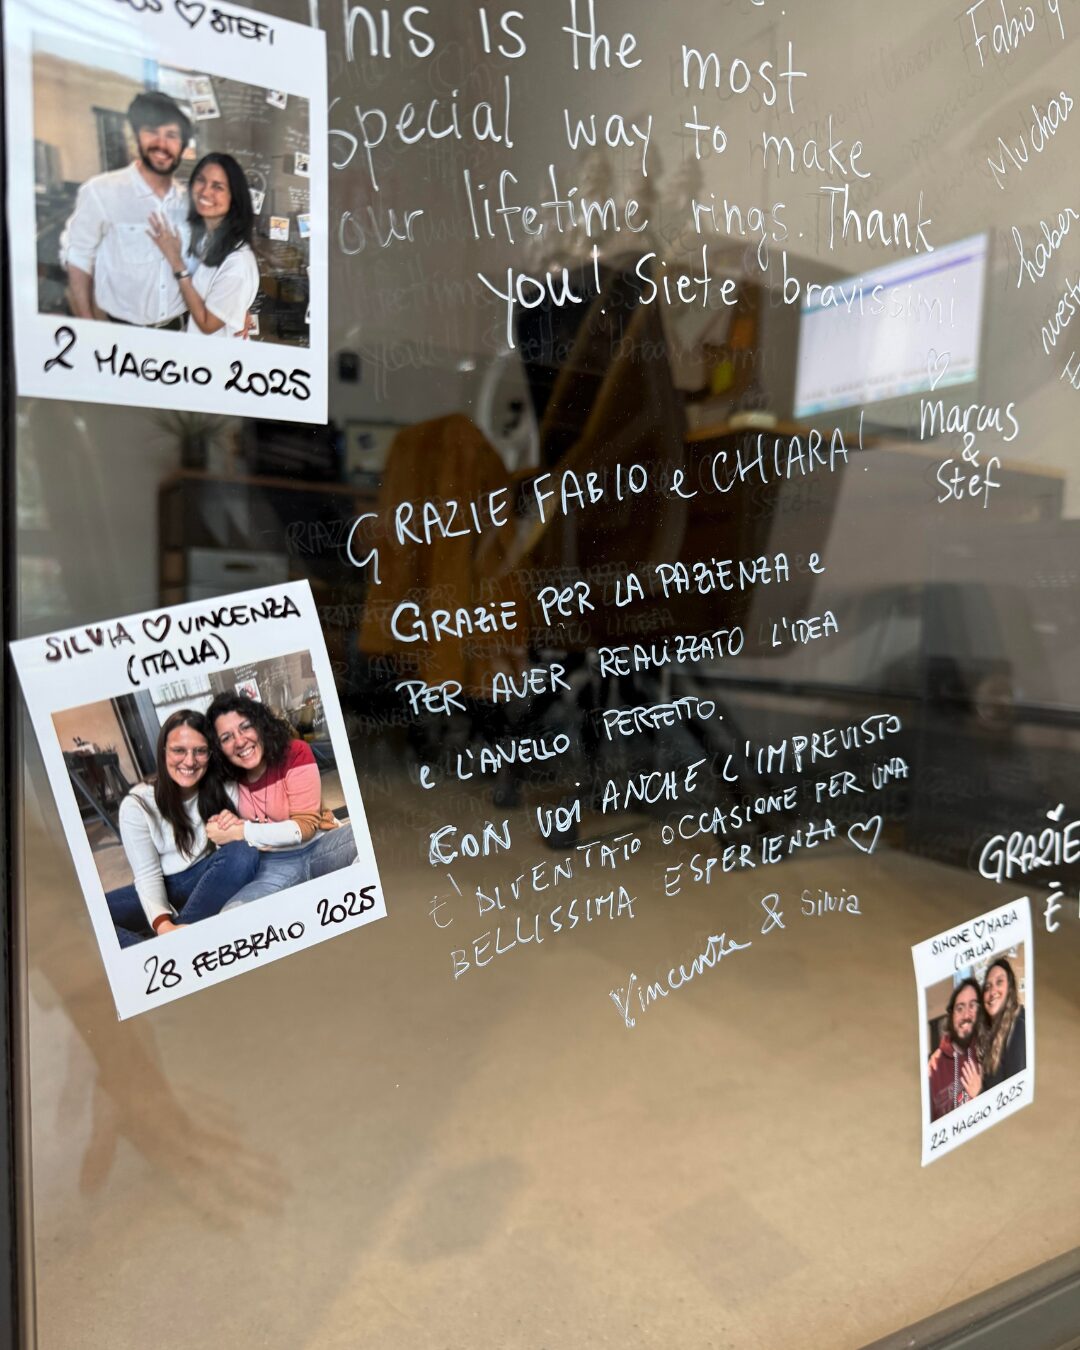 ♡ STEFI
2 MAGGIO 2025
This is the most
special way to make
our lifetime rings. Thank
you! Siete bravissimi
♡
Marcus
&
Stef
Fabio y
Muchas
haber
GRAZIE FABIO e CHIARA!
GRAZIE PER LA PAZIENZA e
PER AVER REALIZZATO L'IDEA
e L'ANELLO PERFETTO.
CON VOI ANCHE L'IMPREVISTO
E' DIVENTATO OCCASIONE PER UNA
BELLISSIMA ESPERIENZA ♡
Vincenza & Silvia
SILVIA ♡ VINCENZA
(ITALIA)
28 FEBBRAIO 2025
GRAZIE
È
SIMONE ♡ MARIA
(ITALIA)
22 MAGGIO 2025